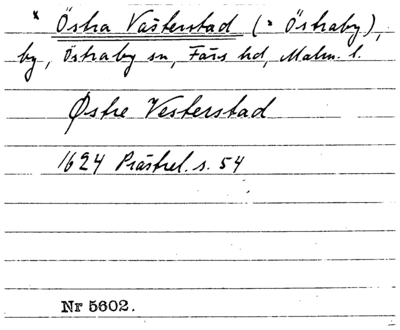 * Östra Västerstad (= Östraby),
by, Östraby sn, Färs hd, Malm. l.
Østre Vesterstad
1624 Prästrel. s. 54
Nr 5602.